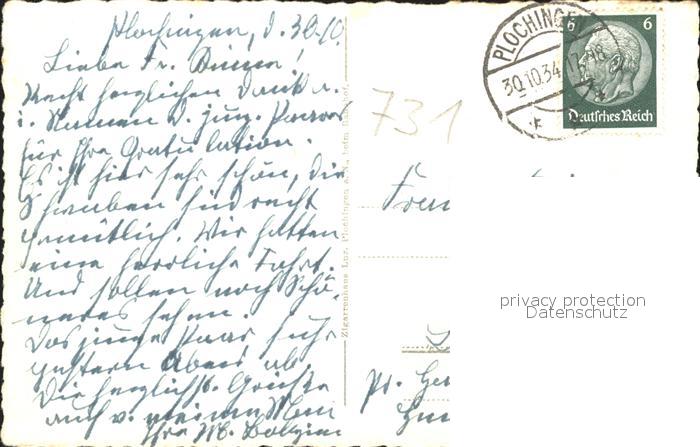 Plochingen, d. 30.10.
Liebe Fr.
Recht herzlichen Dank a.
i. Namen d. jung. Paares
für Ihre Gratulation.
Es ist hier sehr schön, die
Schwaben sind recht
gemütlich. Wir hatten
eine herrliche Fahrt.
Und sollen noch Schö-
neres sehen.
Das junge Paar fuhr
gestern Abend ab.
Die herzlichst. Grüsse
auch v. meinem Mann
Ihre M.
Zigarrenhaus Luz, Plochingen a. N., beim Bahnhof
731
PLOCHINGEN
30.10.34. 17-18
6 6
Deutsches Reich
Frau
privacy protection
Datenschutz